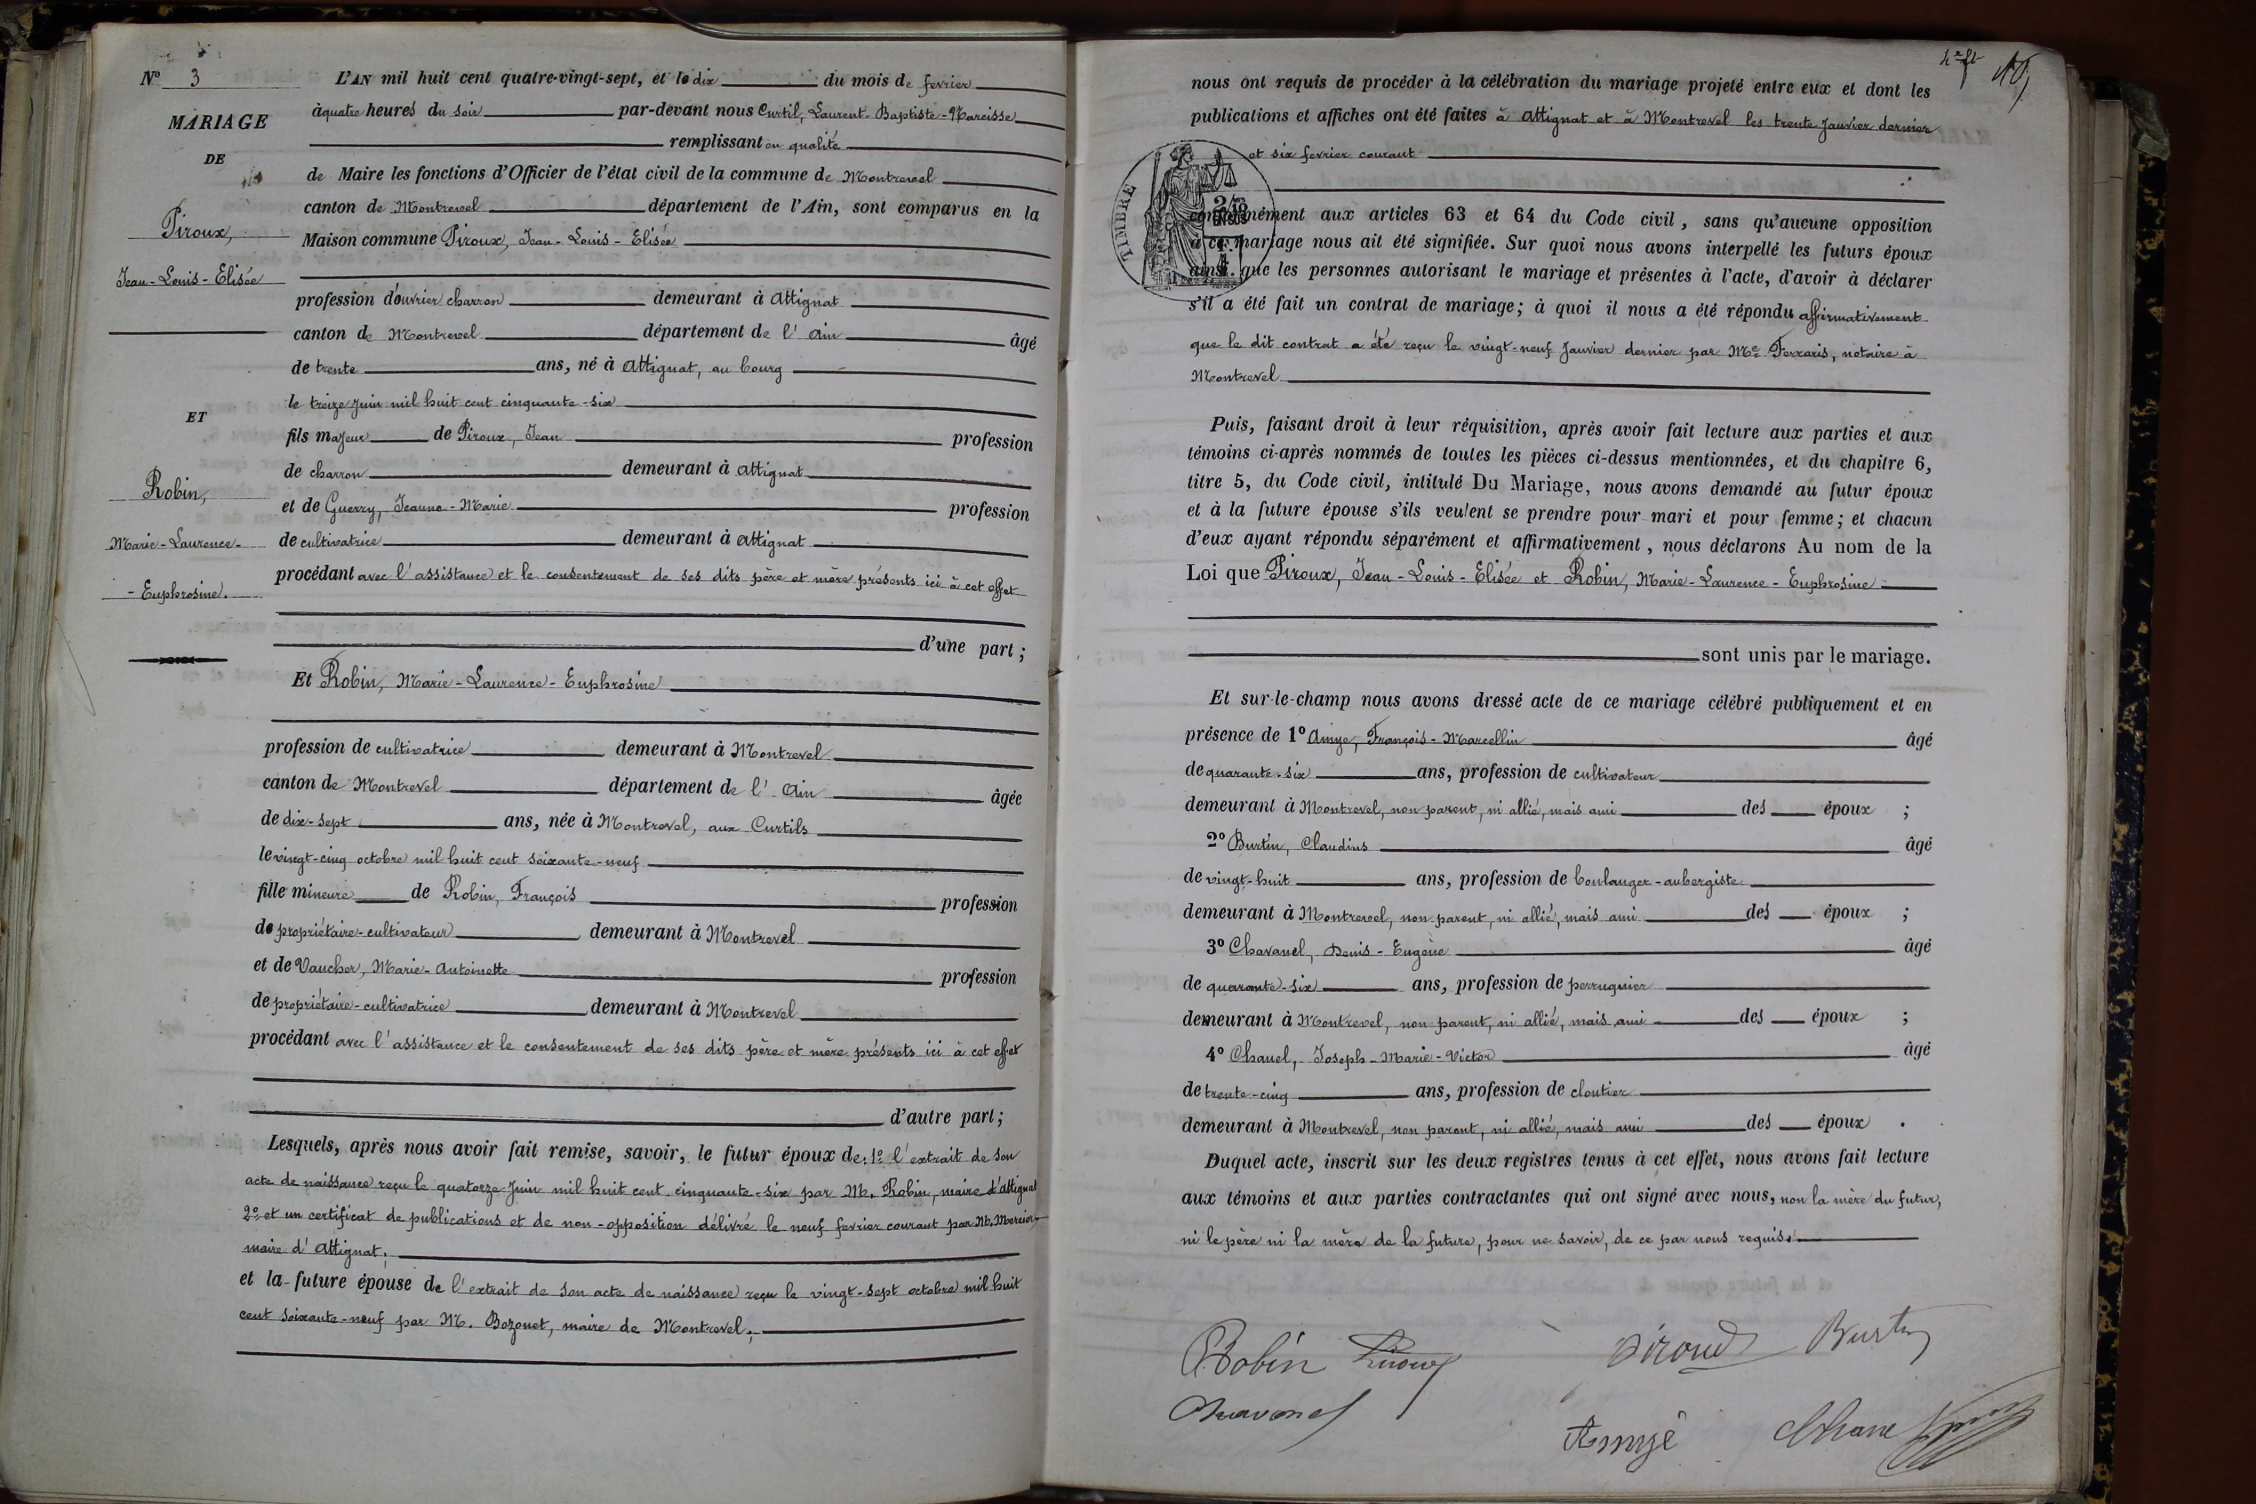 N° 3
MARIAGE
DE
Piroux,
Jean-Louis-Elisée
ET
Robin,
Marie-Laurence-
-Euphrosine.
L'AN mil huit cent quatre-vingt-sept, et le dix du mois de fevrier
à quatre heures du soir par-devant nous Curtil, Laurent-Baptiste-Narcisse
remplissant en qualité
de Maire les fonctions d'Officier de l'état civil de la commune de Montrevel
canton de Montrevel département de l'Ain, sont comparus en la
Maison commune Piroux, Jean-Louis-Elisée
profession d'ouvrier charron demeurant à Attignat
canton de Montrevel département de l'Ain âgé
de trente ans, né à Attignat, au bourg
le treize Juin mil huit cent cinquante-six
fils majeur de Piroux, Jean profession
de charron demeurant à Attignat
et de Guerry, Jeanne-Marie profession
de cultivatrice demeurant à Attignat
procédant avec l'assistance et le consentement de ses dits père et mère présents ici à cet effet
d'une part ;
Et Robin, Marie-Laurence-Euphrosine
profession de cultivatrice demeurant à Montrevel
canton de Montrevel département de l'Ain âgée
de dix-sept ans, née à Montrevel, aux Curtils
le vingt-cinq octobre mil huit cent soixante-neuf
fille mineure de Robin, François profession
de propriétaire-cultivateur demeurant à Montrevel
et de Vaucher, Marie-Antoinette profession
de propriétaire-cultivatrice demeurant à Montrevel
procédant avec l'assistance et le consentement de ses dits père et mère présents ici à cet effet
d'autre part ;
Lesquels, après nous avoir fait remise, savoir, le futur époux de : 1° l'extrait de son
acte de naissance reçu le quatorze Juin mil huit cent cinquante-six par M. Robin, maire d'Attignat
2° et un certificat de publications et de non-opposition délivré le neuf fevrier courant par M. Mercier
maire d'Attignat ;
et la future épouse de l'extrait de son acte de naissance reçu le vingt-sept octobre mil huit
cent soixante-neuf par M. Bozonet, maire de Montrevel ;
nous ont requis de procéder à la célébration du mariage projeté entre eux et dont les
publications et affiches ont été faites à Attignat et à Montrevel les trente Janvier dernier
et six fevrier courant
TIMBRE
conformément aux articles 63 et 64 du Code civil, sans qu'aucune opposition
à ce mariage nous ait été signifiée. Sur quoi nous avons interpellé les futurs époux
ainsi que les personnes autorisant le mariage et présentes à l'acte, d'avoir à déclarer
s'il a été fait un contrat de mariage ; à quoi il nous a été répondu affirmativement
que le dit contrat a été reçu le vingt-neuf Janvier dernier par Me Ferraris, notaire à
Montrevel
Puis, faisant droit à leur réquisition, après avoir fait lecture aux parties et aux
témoins ci-après nommés de toutes les pièces ci-dessus mentionnées, et du chapitre 6,
titre 5, du Code civil, intitulé Du Mariage, nous avons demandé au futur époux
et à la future épouse s'ils veulent se prendre pour mari et pour femme ; et chacun
d'eux ayant répondu séparément et affirmativement, nous déclarons Au nom de la
Loi que Piroux, Jean-Louis-Elisée et Robin, Marie-Laurence-Euphrosine
sont unis par le mariage.
Et sur-le-champ nous avons dressé acte de ce mariage célébré publiquement et en
présence de 1° Amye, François-Marcellin âgé
de quarante-six ans, profession de cultivateur
demeurant à Montrevel, non parent, ni allié, mais ami des époux ;
2° Burtin, Claudius âgé
de vingt-huit ans, profession de boulanger-aubergiste
demeurant à Montrevel, non parent, ni allié, mais ami des époux ;
3° Chavanel, Denis-Eugène âgé
de quarante-six ans, profession de perruquier
demeurant à Montrevel, non parent, ni allié, mais ami des époux ;
4° Chanel, Joseph-Marie-Victor âgé
de trente-cinq ans, profession de cloutier
demeurant à Montrevel, non parent, ni allié, mais ami des époux .
Duquel acte, inscrit sur les deux registres tenus à cet effet, nous avons fait lecture
aux témoins et aux parties contractantes qui ont signé avec nous, non la mère du futur,
ni le père ni la mère de la future, pour ne savoir, de ce par nous requis.
Robin Piroux Burtin
Chavanel Amyé